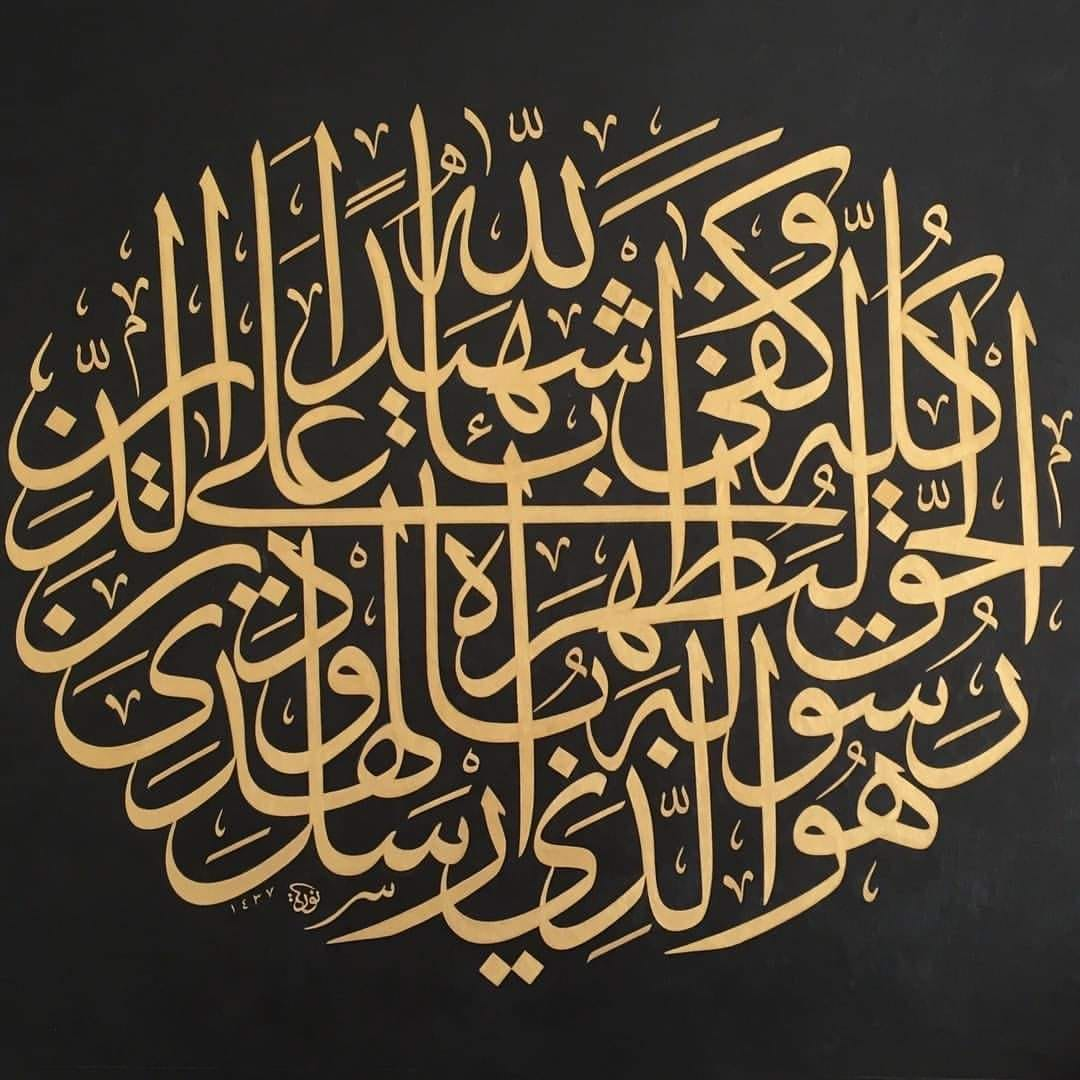 هو الذي ارسل رسوله بالهدى ودين الحق ليظهره على الدين كله وكفى بالله شهيدا
١٤٣٧